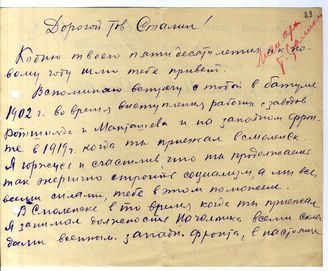 29
Дорогой Тов. Сталин!
Ко дню твоего пятидесятилетия и к но-
вому году шлю тебе привет.
Вспоминаю встречу с тобой в Батуме
1902 г. во время выступления рабочих заводов
Ротшильда и Манташева и на западном фрон-
те в 1919 г. когда ты приезжал в Смоленск
Я горжусь и счастлив что ты продолжаешь
так энергично строить социализм, а мы все,
всеми силами, тебе в этом поможем.
В Смоленске в то время когда ты приезжал
Я занимал должность Начальника всеми скла-
дами военном. западн. фронта, в настоящ